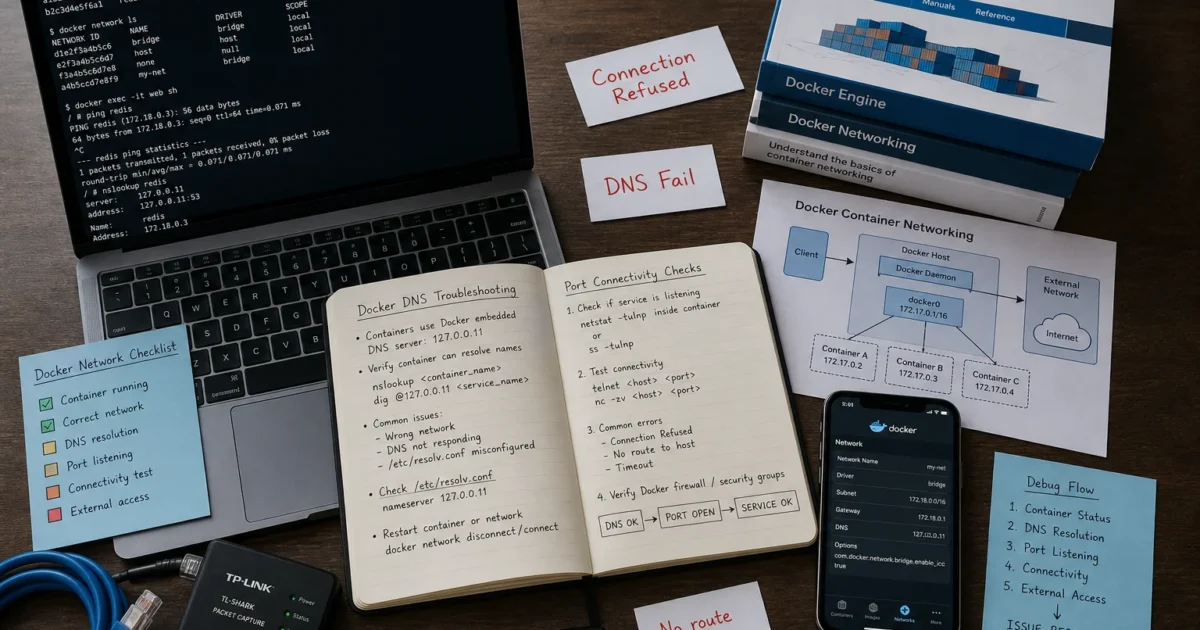 b2c3d4e5f6a1
$ docker network ls
NETWORK ID NAME DRIVER SCOPE
d1e2f3a4b5c6 bridge bridge local
e2f3a4b5c6d7 host host local
f3a4b5c6d7e8 none null local
a4b5ccd7e8f9 my-net bridge local
$ docker exec -it web sh
/ # ping redis
PING redis (172.18.0.3): 56 data bytes
64 bytes from 172.18.0.3: seq=0 ttl=64 time=0.071 ms
^C
--- redis ping statistics ---
1 packets transmitted, 1 packets received, 0% packet loss
round-trip min/avg/max = 0.071/0.071/0.071 ms
/ # nslookup redis
server: 127.0.0.11
address: 127.0.0.11:53
Name: redis
Address: 172.18.0.3
Connection
Refused
DNS Fail
Manuals Reference
Docker Engine
Docker Networking
Understand the basics of
container networking
Docker Container Networking
Client
Docker Host
Docker Daemon
docker0
172.17.0.1/16
External
Network
Internet
Container A
172.17.0.2
Container B
172.17.0.3
Container C
172.17.0.4
Docker Network Checklist
Container running
Correct network
DNS resolution
Port listening
Connectivity test
External access
Docker DNS Troubleshooting
• Containers use Docker embedded
DNS server: 127.0.0.11
• Verify container can resolve names
nslookup <container_name>
dig @127.0.0.11 <service_name>
• Common issues:
- Wrong network
- DNS not responding
- /etc/resolv.conf misconfigured
• Check /etc/resolv.conf
nameserver 127.0.0.11
• Restart container or network
docker network disconnect/connect
Port Connectivity Checks
1. Check if service is listening
netstat -tulnp inside container
or
ss -tulnp
2. Test connectivity
telnet <host> <port>
nc -zv <host> <port>
3. Common errors
- Connection Refused
- No route to host
- Timeout
4. Verify Docker firewall / security groups
DNS OK → PORT OPEN → SERVICE OK
docker
Network
Network Name my-net
Driver bridge
Subnet 172.18.0.0/16
Gateway 172.18.0.1
DNS
Options
com.docker.network.bridge.enable_icc
true
Containers Images Networks More
Debug Flow
1. Container Status
2. DNS Resolution
3. Port Listening
4. Connectivity
5. External Access
↓
TP-LINK
TL-SHARK
PACKET CAPTURE
Power
Status
No route